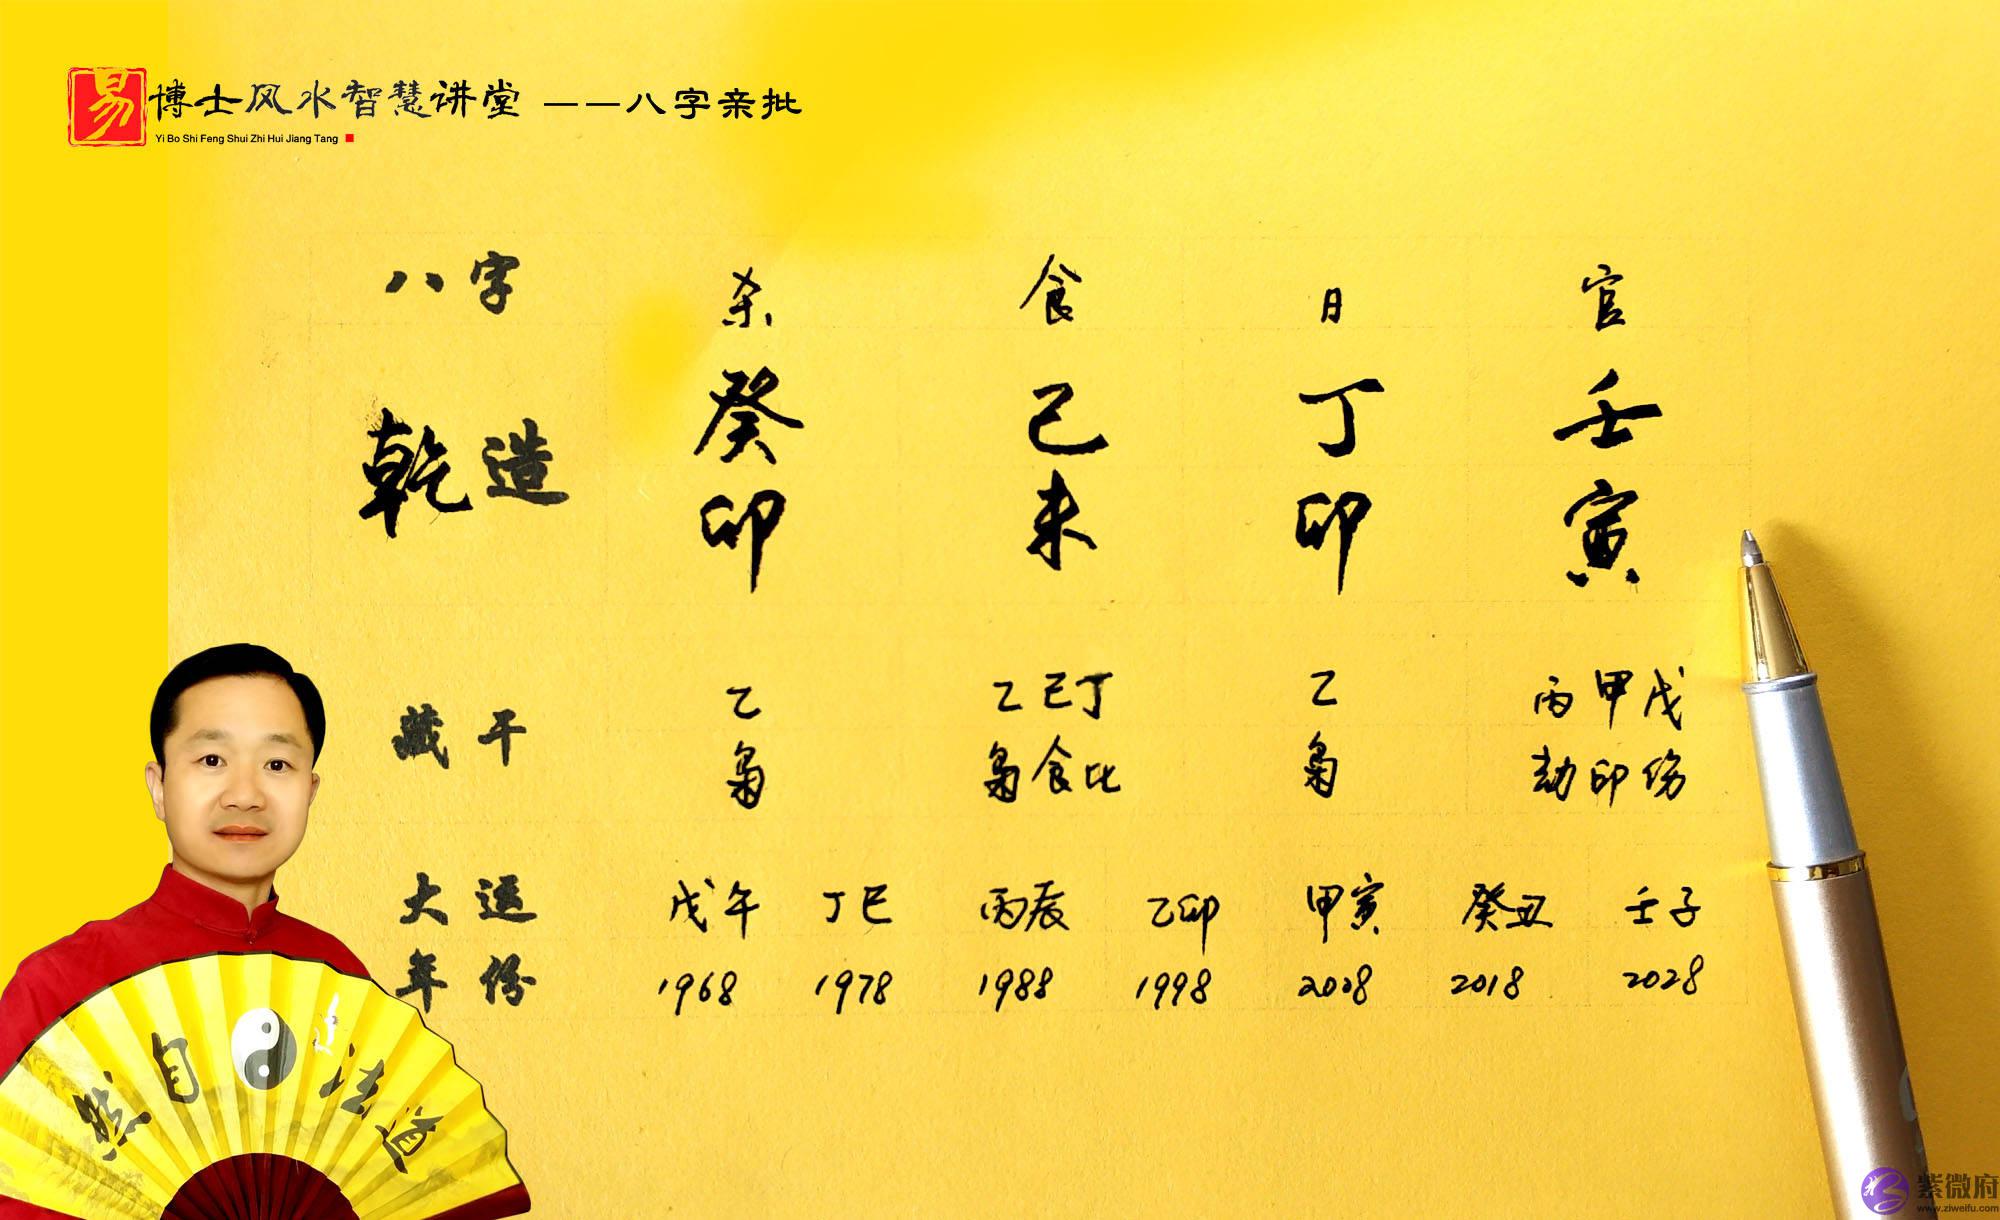 易博士风水智慧讲堂 ——八字亲批
Yi Bo Shi Feng Shui Zhi Hui Jiang Tang
八字 杀 食 日 官
乾造 癸 己 丁 壬
卯 未 卯 寅
藏干 乙 乙己丁 乙 丙甲戊
枭 枭食比 枭 劫印伤
大运 戊午 丁巳 丙辰 乙卯 甲寅 癸丑 壬子
年份 1968 1978 1988 1998 2008 2018 2028
道法自然
紫微府
www.ziweifu.com